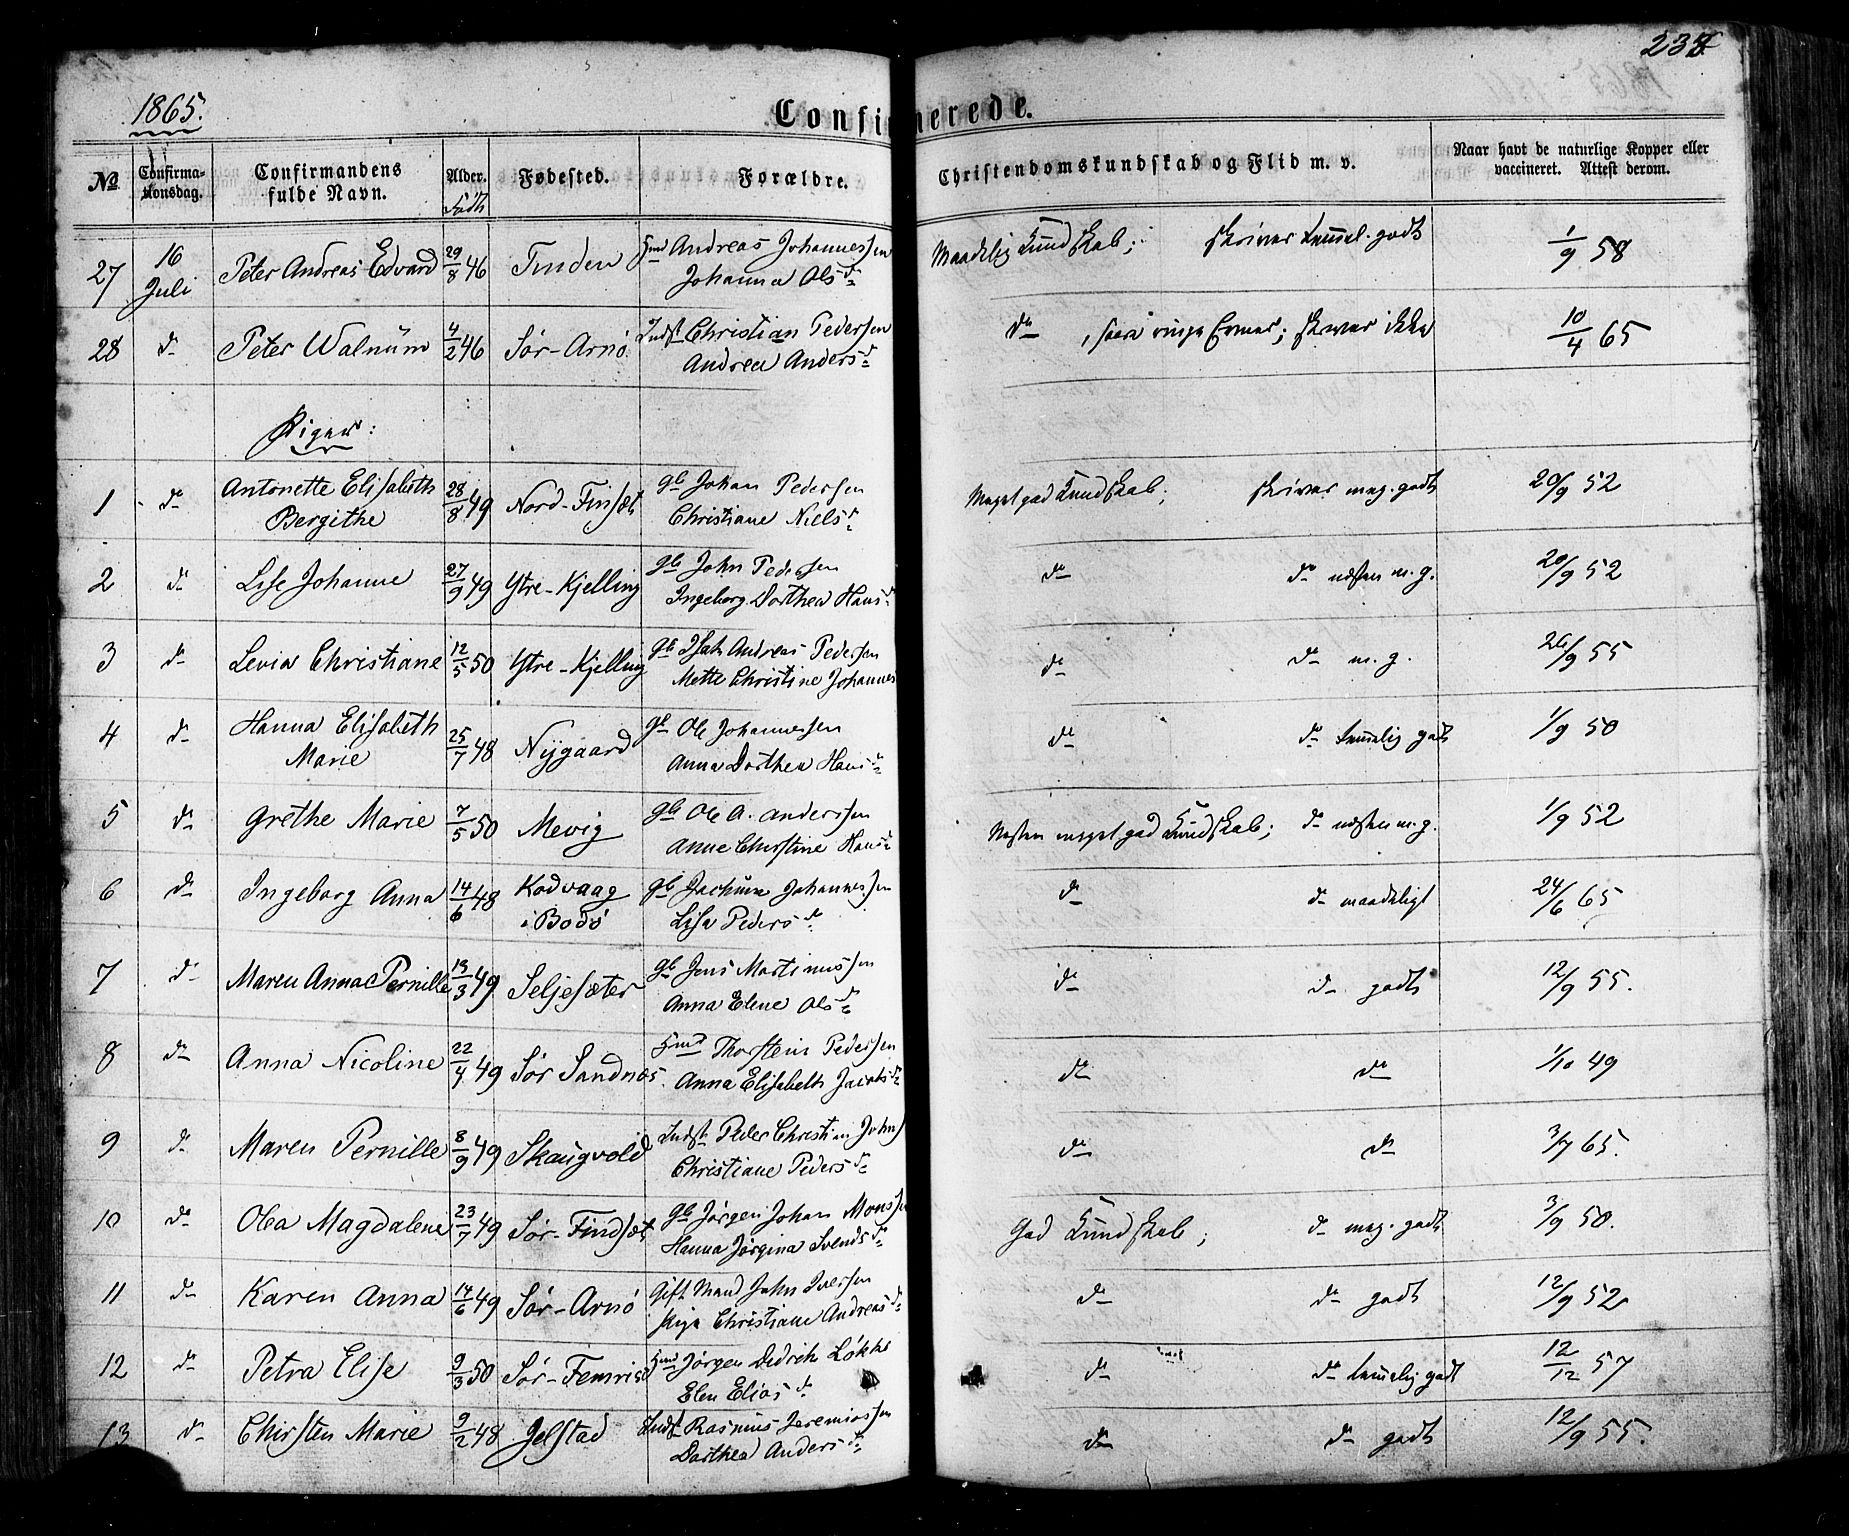 1865.
238
Confirmerede.
No
Confirma-
tionsdag.
Confirmandens
fulde Navn.
Alder.
Født
Fødested.
Forældre.
Christendomskundskab og Flid m. v.
Naar havt de naturlige Kopper eller
vaccineret. Attest derom.
27 16 Juli Peter Andreas Edvard 29/8 46 Tinden Hmd Andreas Johannessen
Johanna Olsdr
Maadelig Kundskab; skriver temmel. godt 1/9 58
28 do Peter Walnum 4/2 46 Sør-Arnø Indst Christian Pedersen
Andrea Andersdr
do, ringe Evner; skriver ikke 10/4 65
Piger:
1 do Antonette Elisabeth
Bergithe 28/8 49 Nord-Finsæt gb Johan Pedersen
Christiane Nielsdr
Meget god Kundskab; skriver meg. godt 20/9 52
2 do Lise Johanne 27/9 49 Ytre-Kjelling gb John Pedersen
Ingeborg Dorthea Hansdr
do do næsten m. g. 20/9 52
3 do Levia Christiane 12/5 50 Ytre-Kjelling gb Isak Andreas Pedersen
Mette Christine Johannes
do do m. g. 26/9 55
4 do Hanna Elisabeth
Marie 25/7 48 Nygaard gb Ole Johannessen
Anna Dorthea Hansdr
do do temmelig godt 1/9 50
5 do Grethe Marie 7/5 50 Mevig gb Ole A. Anderssen
Anne Christine Hansdr
Næsten meget god Kundskab; do næsten m. g. 1/9 52
6 do Ingeborg Anna 14/6 48 Kodvaag
i Bodø gb Jachum Johannessen
Lisa Pedersdr
do do maadeligt 24/6 65
7 do Maren Anna Pernille 13/3 49 Seljesæter gb Jens Martinussen
Anna Elene Olsdr
do do godt 12/9 55.
8 do Anna Nicoline 22/4 49 Sør Sandnæs Hmd Thorstein Pedersen
Anna Elisabeth Jacobsdr
do do 1/10 49
9 do Maren Pernille 8/9 49 Skaugvold Indst Peder Christian Johns
Christiane Pedersdr
do do 3/7 65.
10 do Olea Magdalene 23/7 49 Sør-Findsæt gb Jørgen Johan Monss
Hanna Jørgina Svendsdr
God Kundskab; do meg. godt 3/9 50.
11 do Karen Anna 14/6 49 Sør-Arnø Gift Mand John Iversen
Pige Christiane Andreasdr
do do godt 12/9 52
12 do Petra Elise 9/3 50 Sør-Femris Hmd Jørgen Didrik Løkke
Elen Eliasdr
do do temmelig godt 12/12 57
13 do Chirsten Marie 9/2 48 Jelstad Indst Rasmus Jeremiassen
Dorthea Andersdr
do do godt 12/9 55.